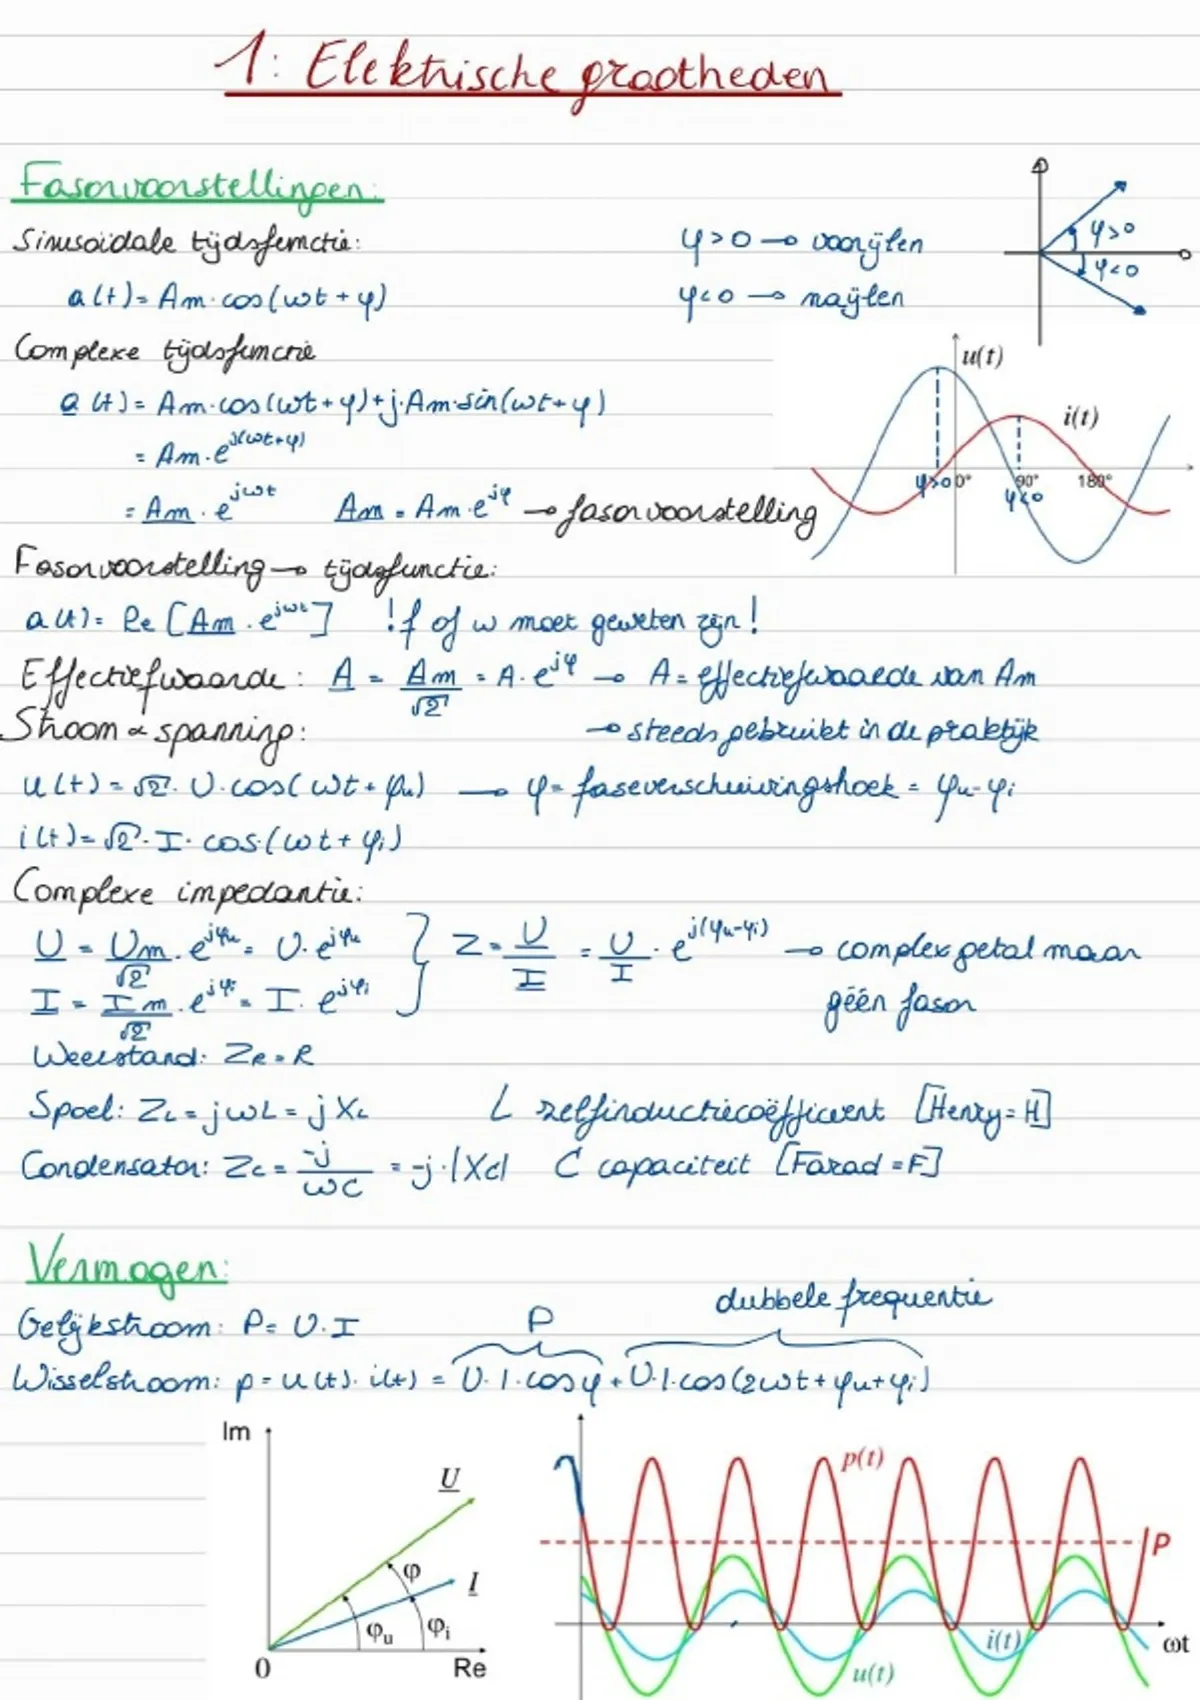 1: Elektrische grootheden
Fasorvoorstellingen:
Sinusoïdale tijdsfunctie:
φ>0 → voorijlen
φ>0
φ<0
a(t) = Am·cos(ωt + φ)
φ<0 → naijlen
Complexe tijdsfunctie
u(t)
i(t)
φ>0 0° 90° 180°
φ<0
a(t) = Am·cos(ωt+φ)+j·Am·sin(ωt+φ)
= Am·e^{j(ωt+φ)}
= Am · e^{jωt} Am = Am·e^{jφ} → fasorvoorstelling
Fasorvoorstelling → tijdsfunctie:
a(t) = Re [Am · e^{jωt}] !f of ω moet geweten zijn!
Effectiefwaarde: A = Am/√2 = A·e^{jφ} → A = effectiefwaarde van Am
Stroom & spanning: → steeds gebruikt in de praktijk
u(t) = √2·U·cos(ωt + φu) → φ = faseverschuivingshoek = φu-φi
i(t) = √2·I·cos·(ωt + φi)
Complexe impedantie:
U = Um/√2 · e^{jφu} = U·e^{jφu} } Z = U/I = U/I · e^{j(φu-φi)} → complex getal maar
I = Im/√2 · e^{jφi} = I·e^{jφi} géén fasor
Weerstand: ZR = R
Spoel: ZL = jωL = jXL L zelfinductiecoëfficiënt [Henry=H]
Condensator: Zc = -j/ωC = -j·|Xc| C capaciteit [Farad=F]
Vermogen:
P dubbele frequentie
Gelijkstroom: P = U·I
Wisselstroom: p = u(t)·i(t) = U·I·cosφ + U·I·cos(2ωt+φu+φi)
Im
U
φ
I
φu
φi
0
Re
p(t)
P
i(t)
ωt
u(t)